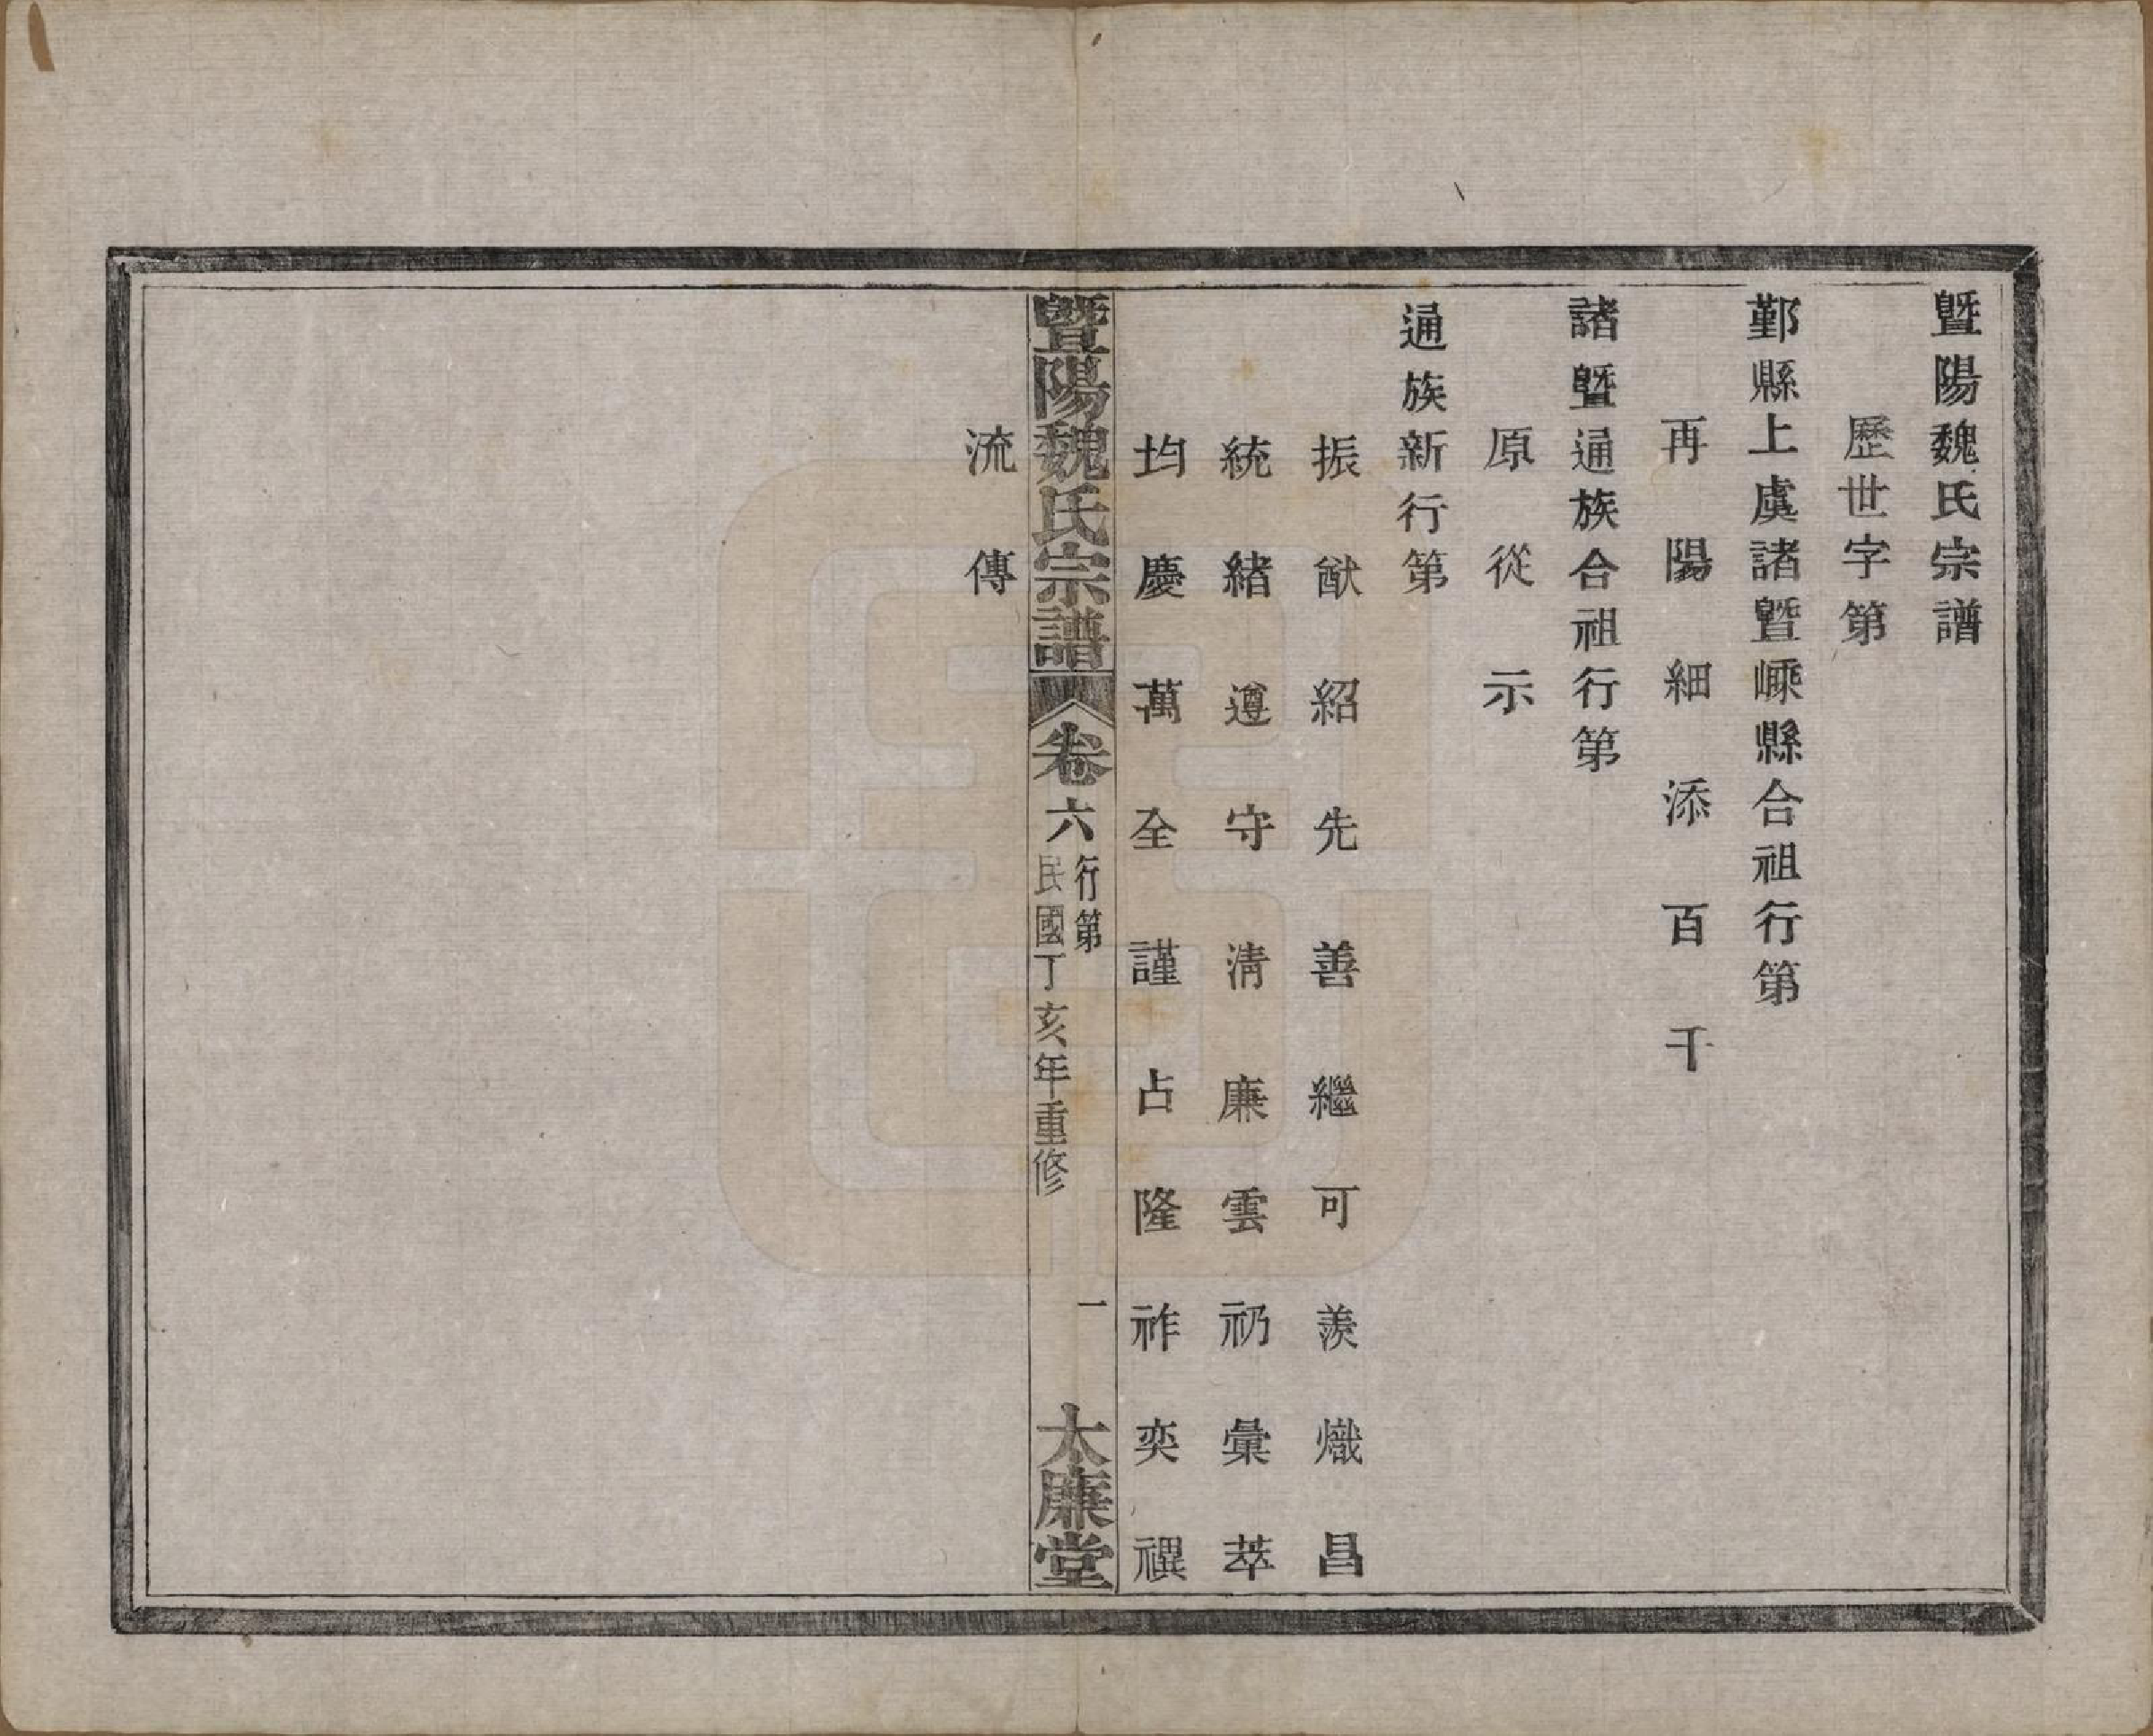 暨陽魏氏宗譜
歷世字第
鄞縣上虞諸暨嵊縣合祖行第
再陽細添百千
諸暨通族合祖行第
原從示
通族新行第
振猷紹先善繼可羨熾昌
統緒遵守清廉雲礽彙萃
均慶萬全謹占隆祚奕禩
暨陽魏氏宗譜
卷六
行第
民國丁亥年重修
一
大廉堂
流傳